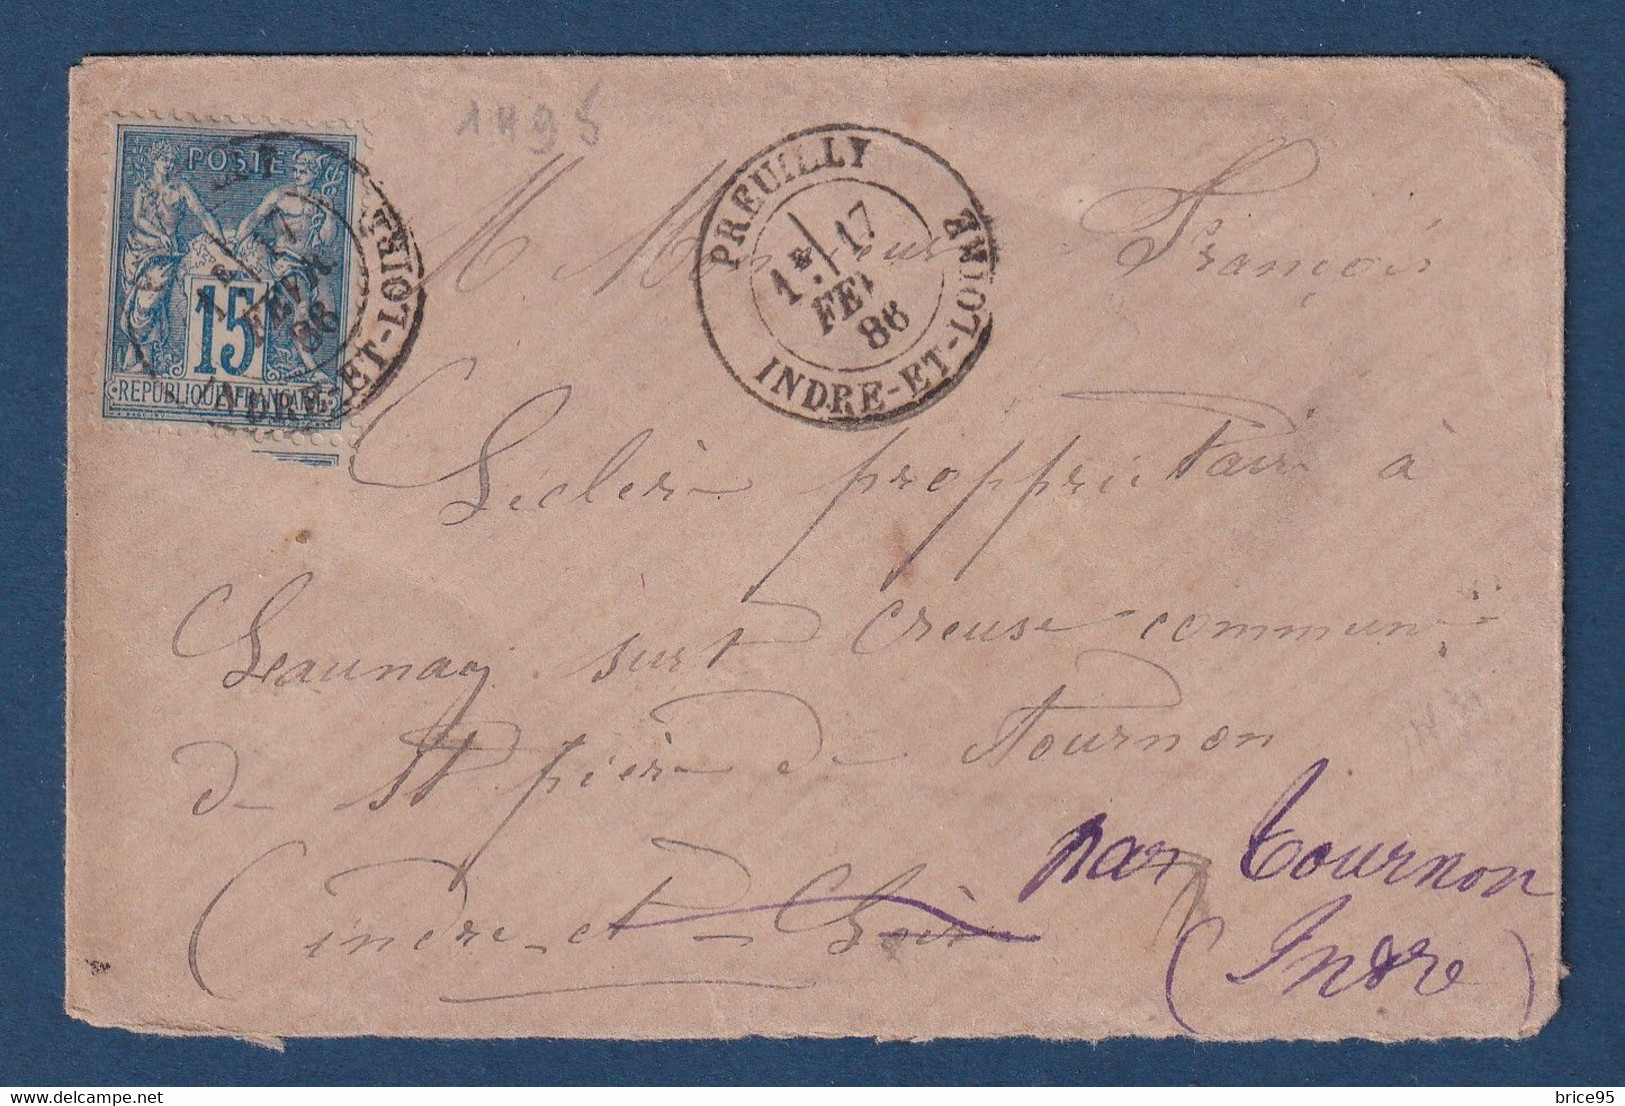 1495
POSTE
15
REPUBLIQUE FRANÇAISE
1E 17
FEVR
86
INDRE-ET-LOIRE
PREUILLY
1E 17
FEV
86
INDRE-ET-LOIRE
M Monsieur François
Lecler proppriétaire à
Launay surt Creuse commune
de St pière de Tournon
(indre et Loire
par Tournon
(Indre)
delcampe.net
brice95